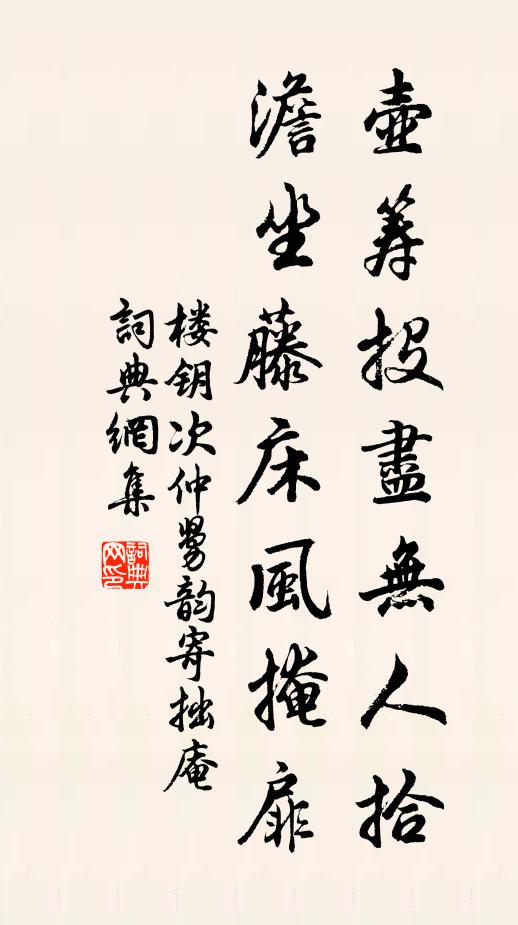 壺筹投盡無人拾
澹坐藤床風掩扉
楼钥次仲舅韵寄拙庵
詞典網集
詞典网印